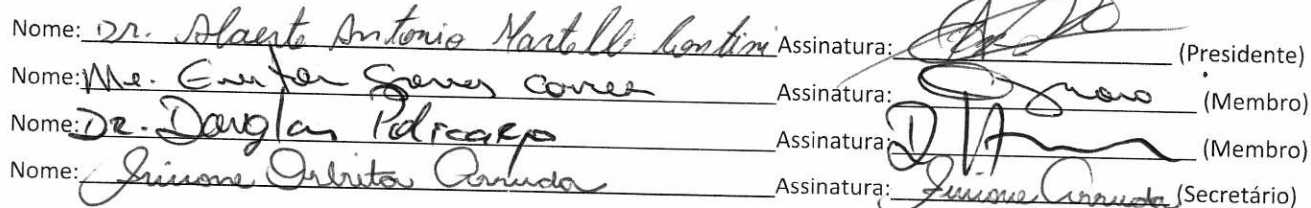 Nome: Dr. Alaerto Antonio Martelli Contini Assinatura: (Presidente)
Nome: Me. Correa Assinatura: (Membro)
Nome: Dr. Douglas Policarpo Assinatura: (Membro)
Nome: Arruda Assinatura: Arruda (Secretário)